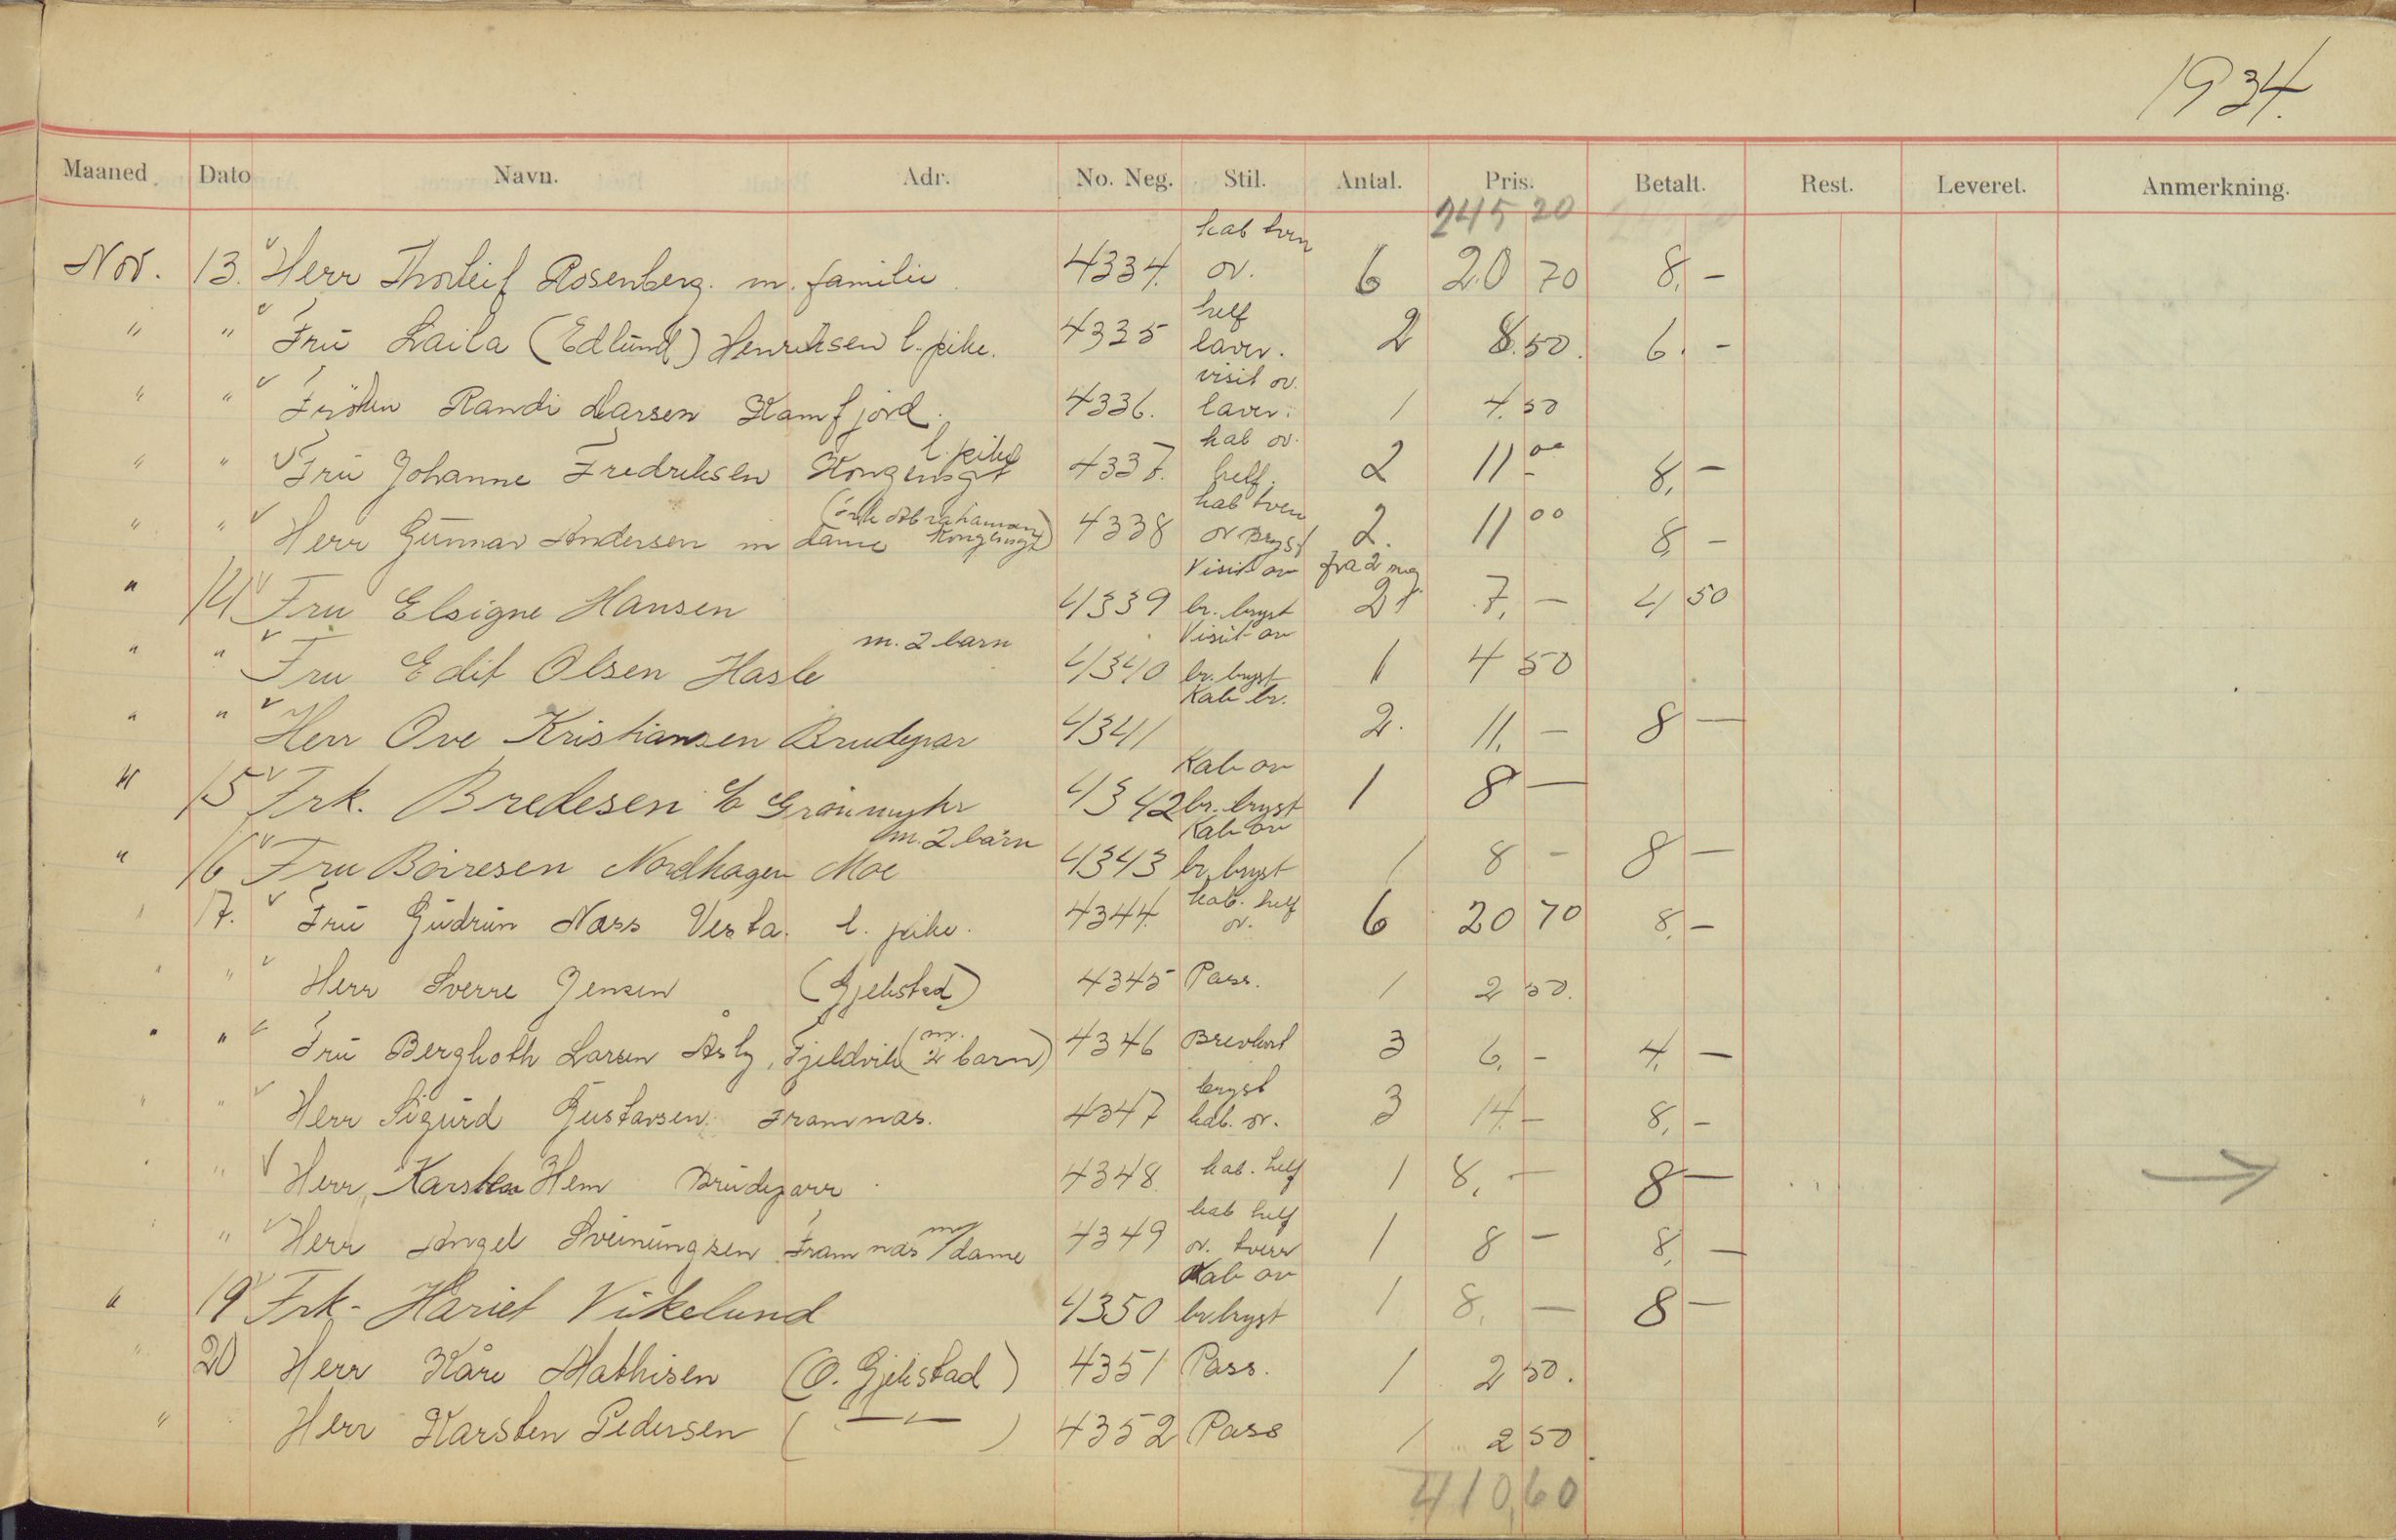 1934.
Maaned. Dato Navn. Adr. No. Neg. Stil. Antal. Pris. Betalt. Rest. Leveret. Anmerkning.
245 20
kab tverr
Nov. 13. Herr Thorleif Rosenberg. m. familie 4334. ov. 6 20 70 8,-
helf
" " Fru Laila (Edlund) Henriksen l. pike. 4335 laver. 2 8.50. 6.-
visit ov.
" " Frøken Randi Larsen Kamfjord. 4336. laver. 1 4.50
l. pike kab ov.
" " Fru Johanne Fredriksen Kongensgt 4337. helf. 2 11 00 8,-
Abrahamsen) kab tverr
" " Herr Gunnar Andersen m dame Kongensgt 4338 ov Bryst 2. 11 00 8,-
Visit ov fra 2 neg
" 14 Fru Elsigne Hansen 4339 br. bryst 2 7,- 4 50
m. 2 barn Visit ov
" " Fru Edit Olsen Hasle 4340 br. bryst 1 4 50
Kab br.
" " Herr Ove Kristiansen Brudepar 4341 2. 11,- 8-
Kab ov
" 15 Frk. Bredesen Grønmyhr 4342 br. bryst 1 8-
m. 2 barn Kab ov
" 16 Fru Børresen Nordhagen Moe 4343 br. bryst 1 8- 8-
kab. helf
" 17. Fru Gudrun Næss Vesta. l. pike. 4344. ov. 6 20 70 8,-
" " Herr Sverre Jensen (Gjekstad) 4345 Pass. 1 2 50.
m.
" " Fru Berghoth Larsen Åsly, Fjeldvik (2 barn) 4346 Brevkort 3 6,- 4,-
bryst
" " Herr Sigurd Gustavsen Framnæs. 4347 kab. ov. 3 14- 8,-
" " Herr, Karsten Hem Brudeparr 4348. kab. helf 1 8,- 8-
m/ kab helf
" " Herr Angel Sveinungsen Framnæs dame 4349 ov. tverr 1 8- 8,-
Kab ov
" 19 Frk- Hariet Vikelund 4350 br. bryst 1 8,- 8-
" 20 Herr Kåre Mathisen (O. Gjekstad) 4351 Pass. 1 2 50.
" Herr Karsten Pedersen ( —"— ) 4352 Pass 1 2 50
410,60